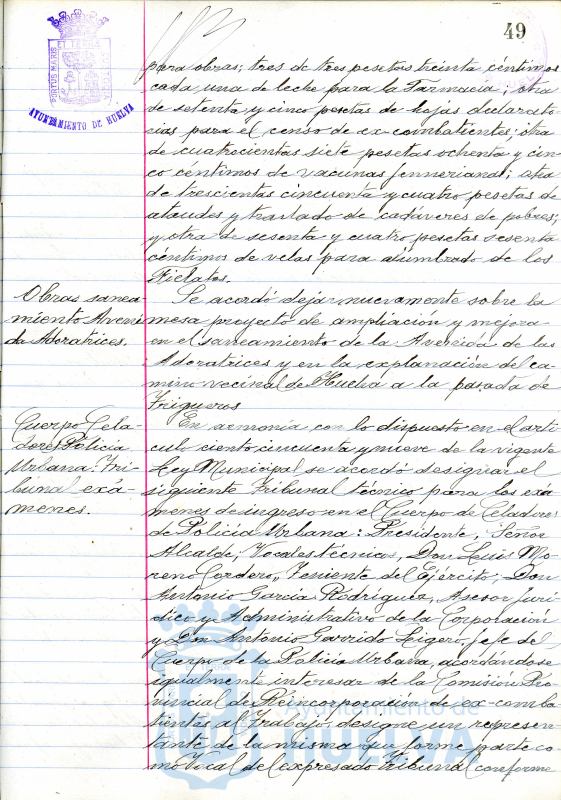 49
PORTUS MARIS ET TERRAE CUSTODIA
AYUNTAMIENTO DE HUELVA
para obras; tres de tres pesetas treinta céntimos
cada una de leche para la Farmacia; otra
de setenta y cinco pesetas de hojas declarato
rias para el censo de ex-combatientes; otra
de cuatrocientas siete pesetas ochenta y cin
co céntimos de vacunas jenneriana; otra
de trescientas cincuenta y cuatro pesetas de
ataudes y traslado de cadáveres de pobres;
y otra de sesenta y cuatro pesetas sesenta
céntimos de velas para alumbrado de los
Fielatos.
Obras sanea-
miento Aveni
da Adoratrices.
Se acordó dejar nuevamente sobre la
mesa proyecto de ampliación y mejora
en el saneamiento de la Avenida de las
Adoratrices y en la explanación del ca
mino vecinal de Huelva a la parada de
Trigueros
Cuerpo Cela-
dores Policía
Urbana. Tri-
bunal exá-
menes.
En armonía con lo dispuesto en el artí
culo ciento cincuenta y nueve de la vigente
Ley Municipal se acordó designar el
siguiente Tribunal técnico para los exá
menes de ingreso en el Cuerpo de Celadores
de Policía Urbana: Presidente, Señor
Alcalde; Vocales técnicos, Don Luis Mo
reno Cordero, Teniente del Ejército; Don
Antonio García Rodríguez, Asesor Jurí
dico y Administrativo de la Corporación
y Don Antonio Garrido Ligero, jefe del
Cuerpo de la Policía Urbana, acordándose
igualmente interesar de la Comisión Pro
vincial de Reincorporación de ex-comba
tientes al trabajo, designe un represen
tante de la misma que forme parte co
mo Vocal del expresado Tribunal conforme
Ayuntamiento de
HUELVA